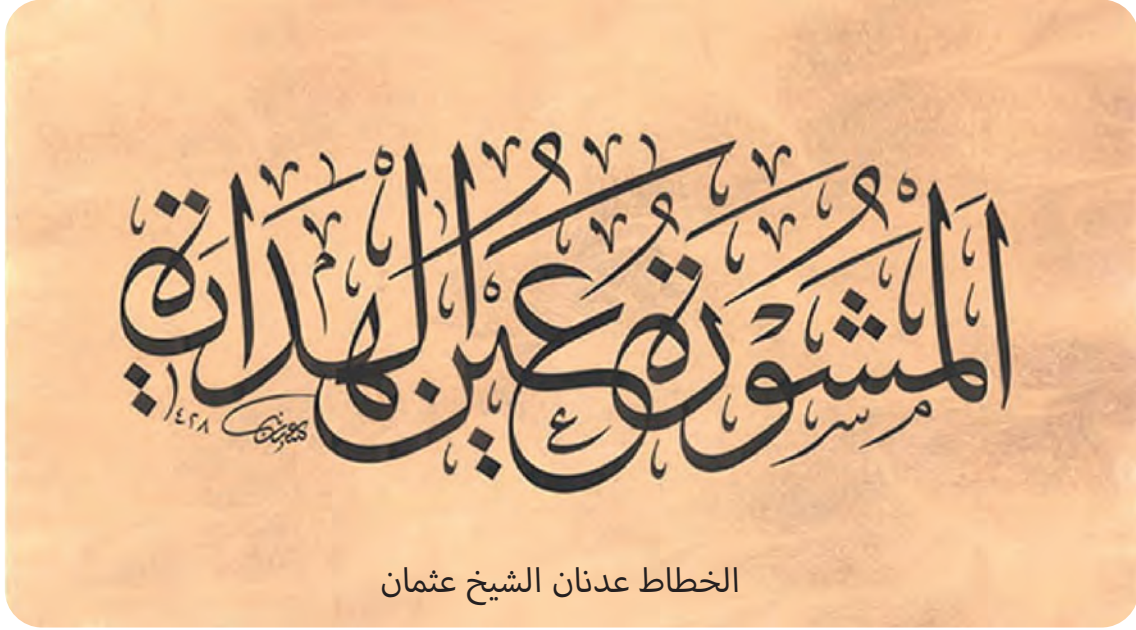 المشورة عين الهداية
عدنان ١٤٢٨
الخطاط عدنان الشيخ عثمان